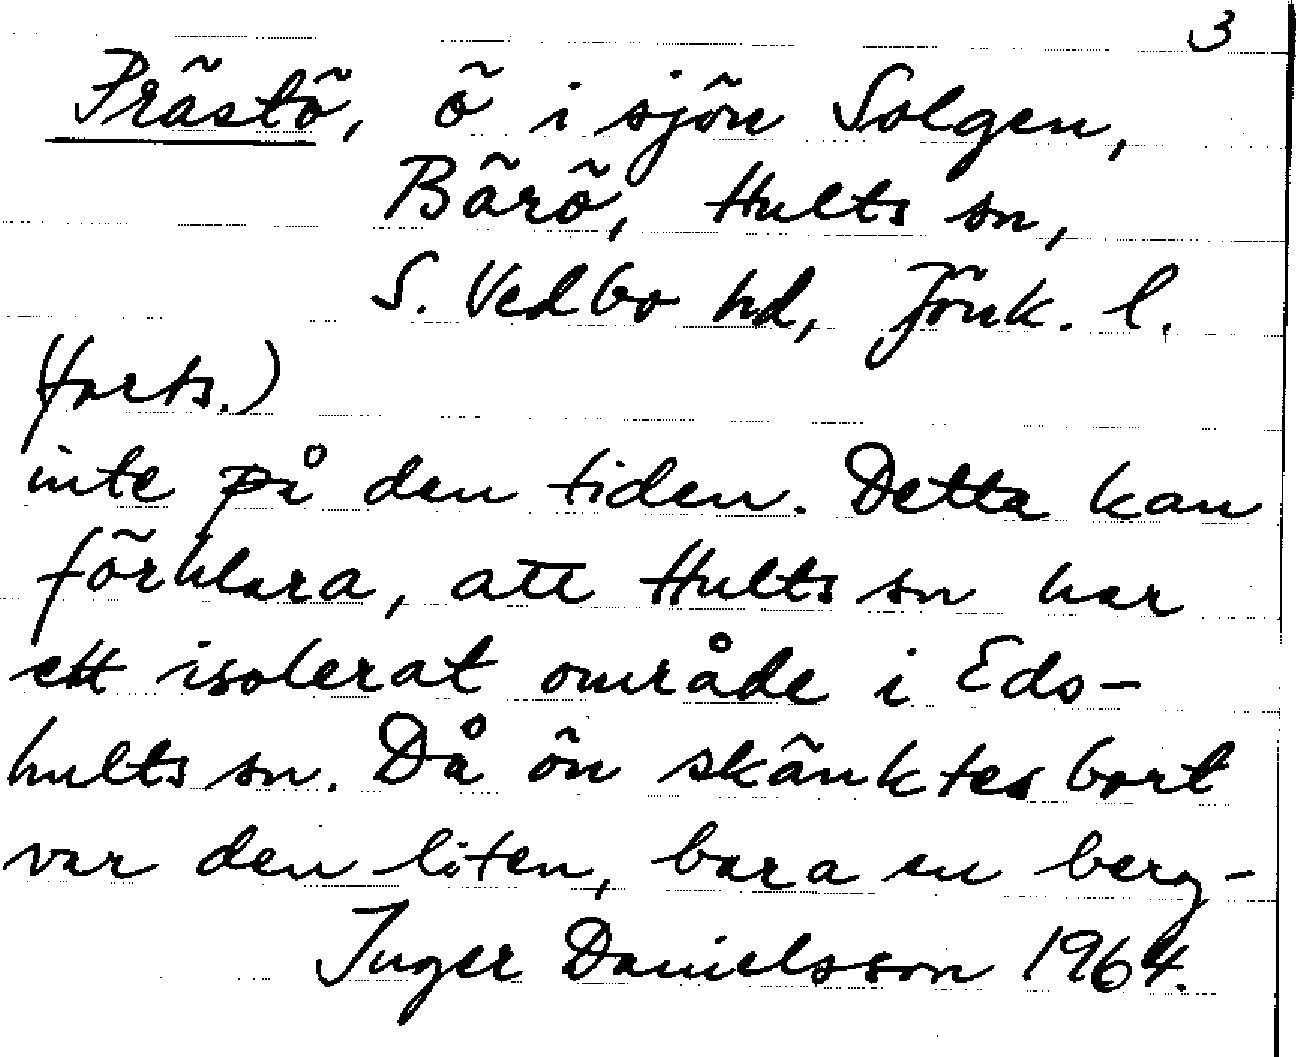 3
Prästö, ö i sjön Solgen,
Bärö, Hults sn,
S. Vedbo hd, Jönk. l.
(forts.)
inte på den tiden. Detta kan
förklara, att Hults sn har
ett isolerat område i Eds-
hults sn. Då ön skänktes bort
var den liten, bara en berg-
Inger Danielsson 1964.